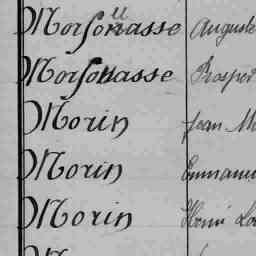 Morsonasse Auguste
Morsonasse Prosper
Morin Jean
Morin
Morin Henri